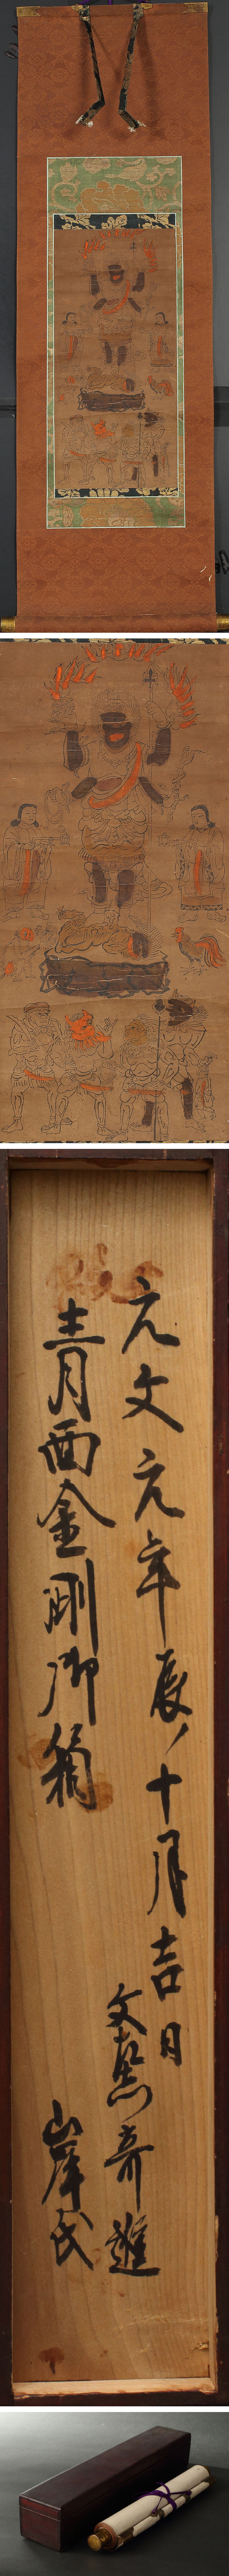 元文元年辰ノ十月吉日
文慙寄進
青面金剛御箱
山岸氏